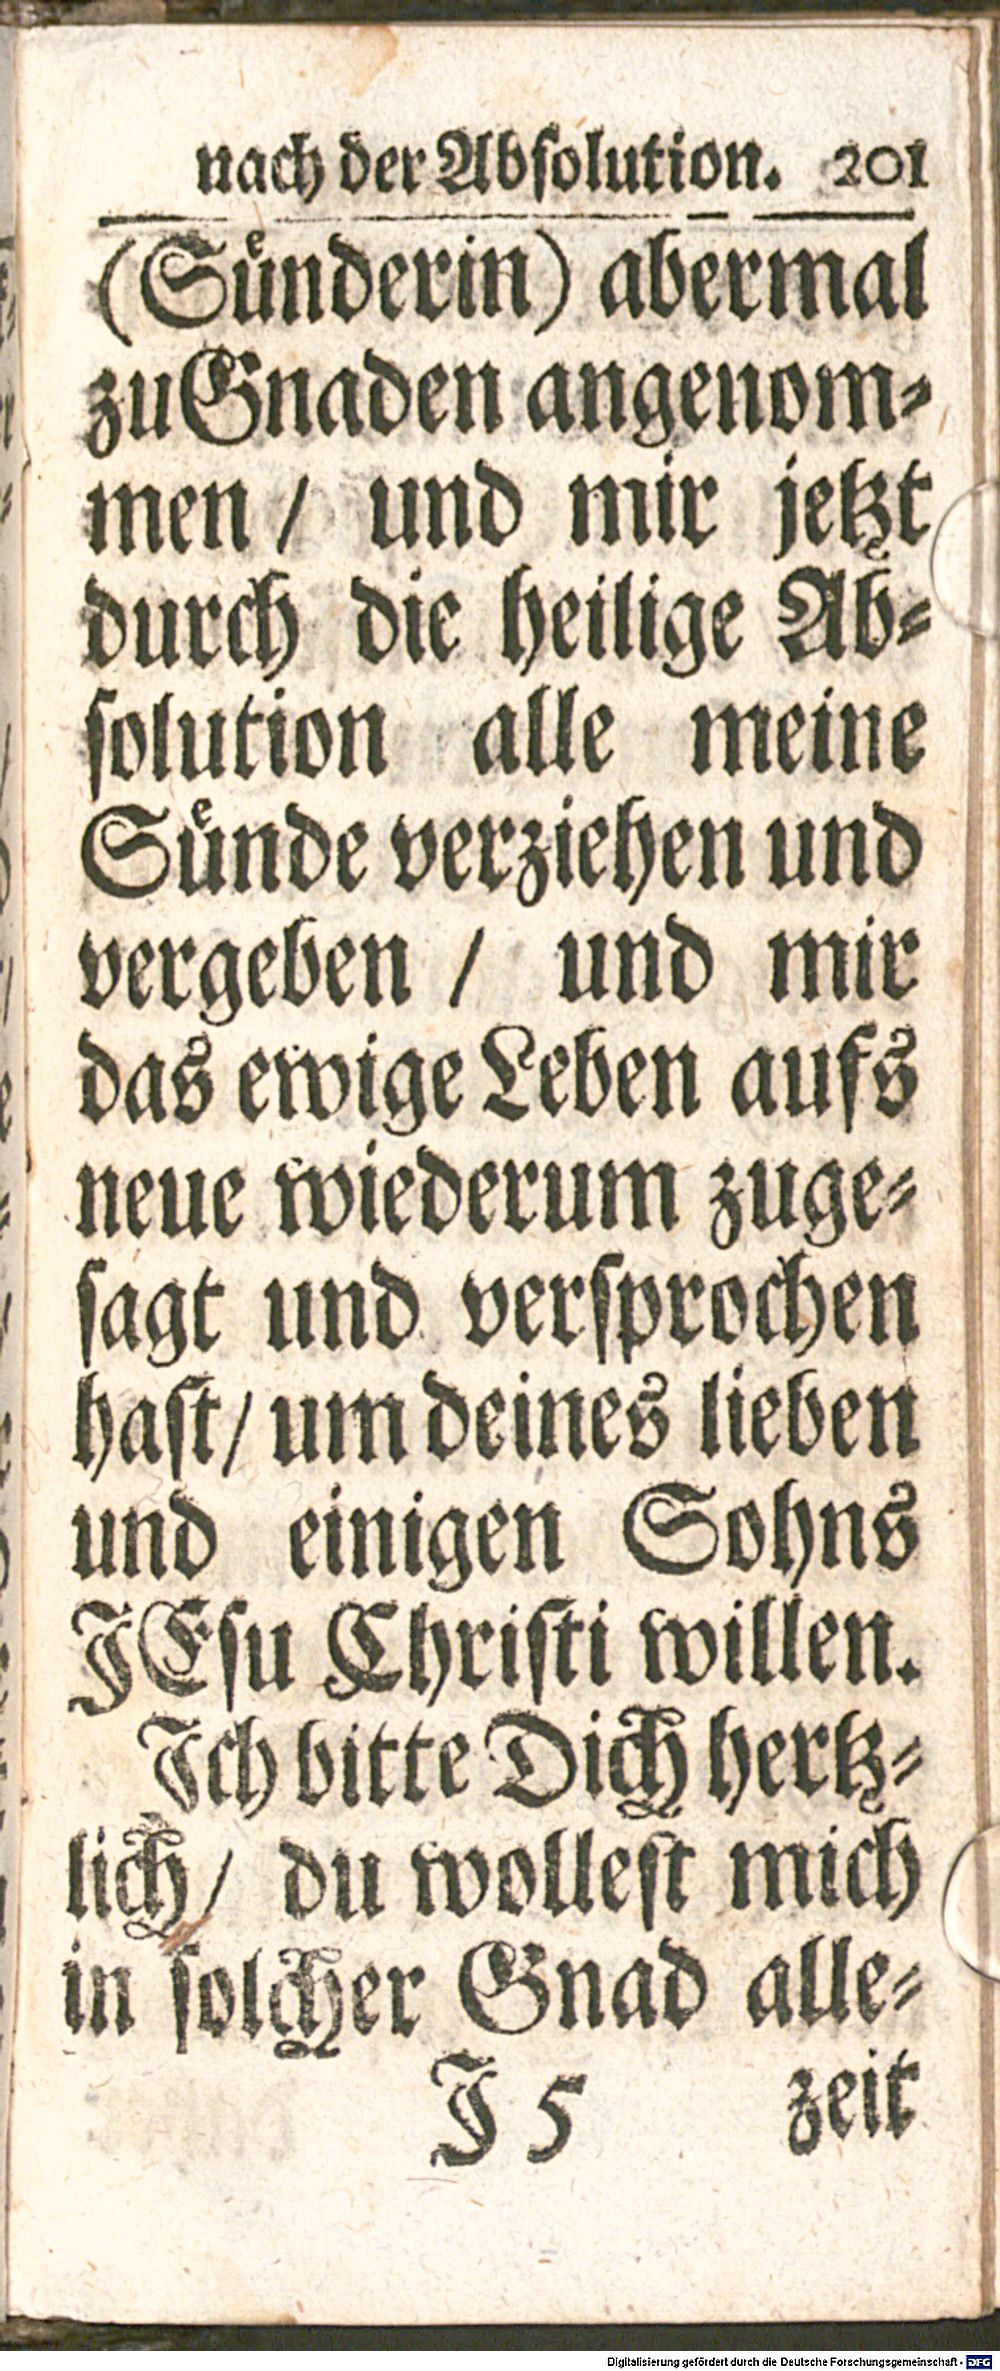 nach der Abſolution. 201
(Suͤnderin) abermal
zu Gnaden angenom⸗
men / und mir jetzt
durch die heilige Ab⸗
ſolution alle meine
Suͤnde verziehen und
vergeben / und mir
das ewige Leben aufs
neue wiederum zuge⸗
ſagt und verſprochen
haſt / um deines lieben
und einigen Sohns
JEſu Chriſti willen.
Ich bitte Dich hertz⸗
lich / du wolleſt mich
in ſolcher Gnad alle⸗
J 5 zeit
Digitalisierung gefördert durch die Deutsche Forschungsgemeinschaft - DFG